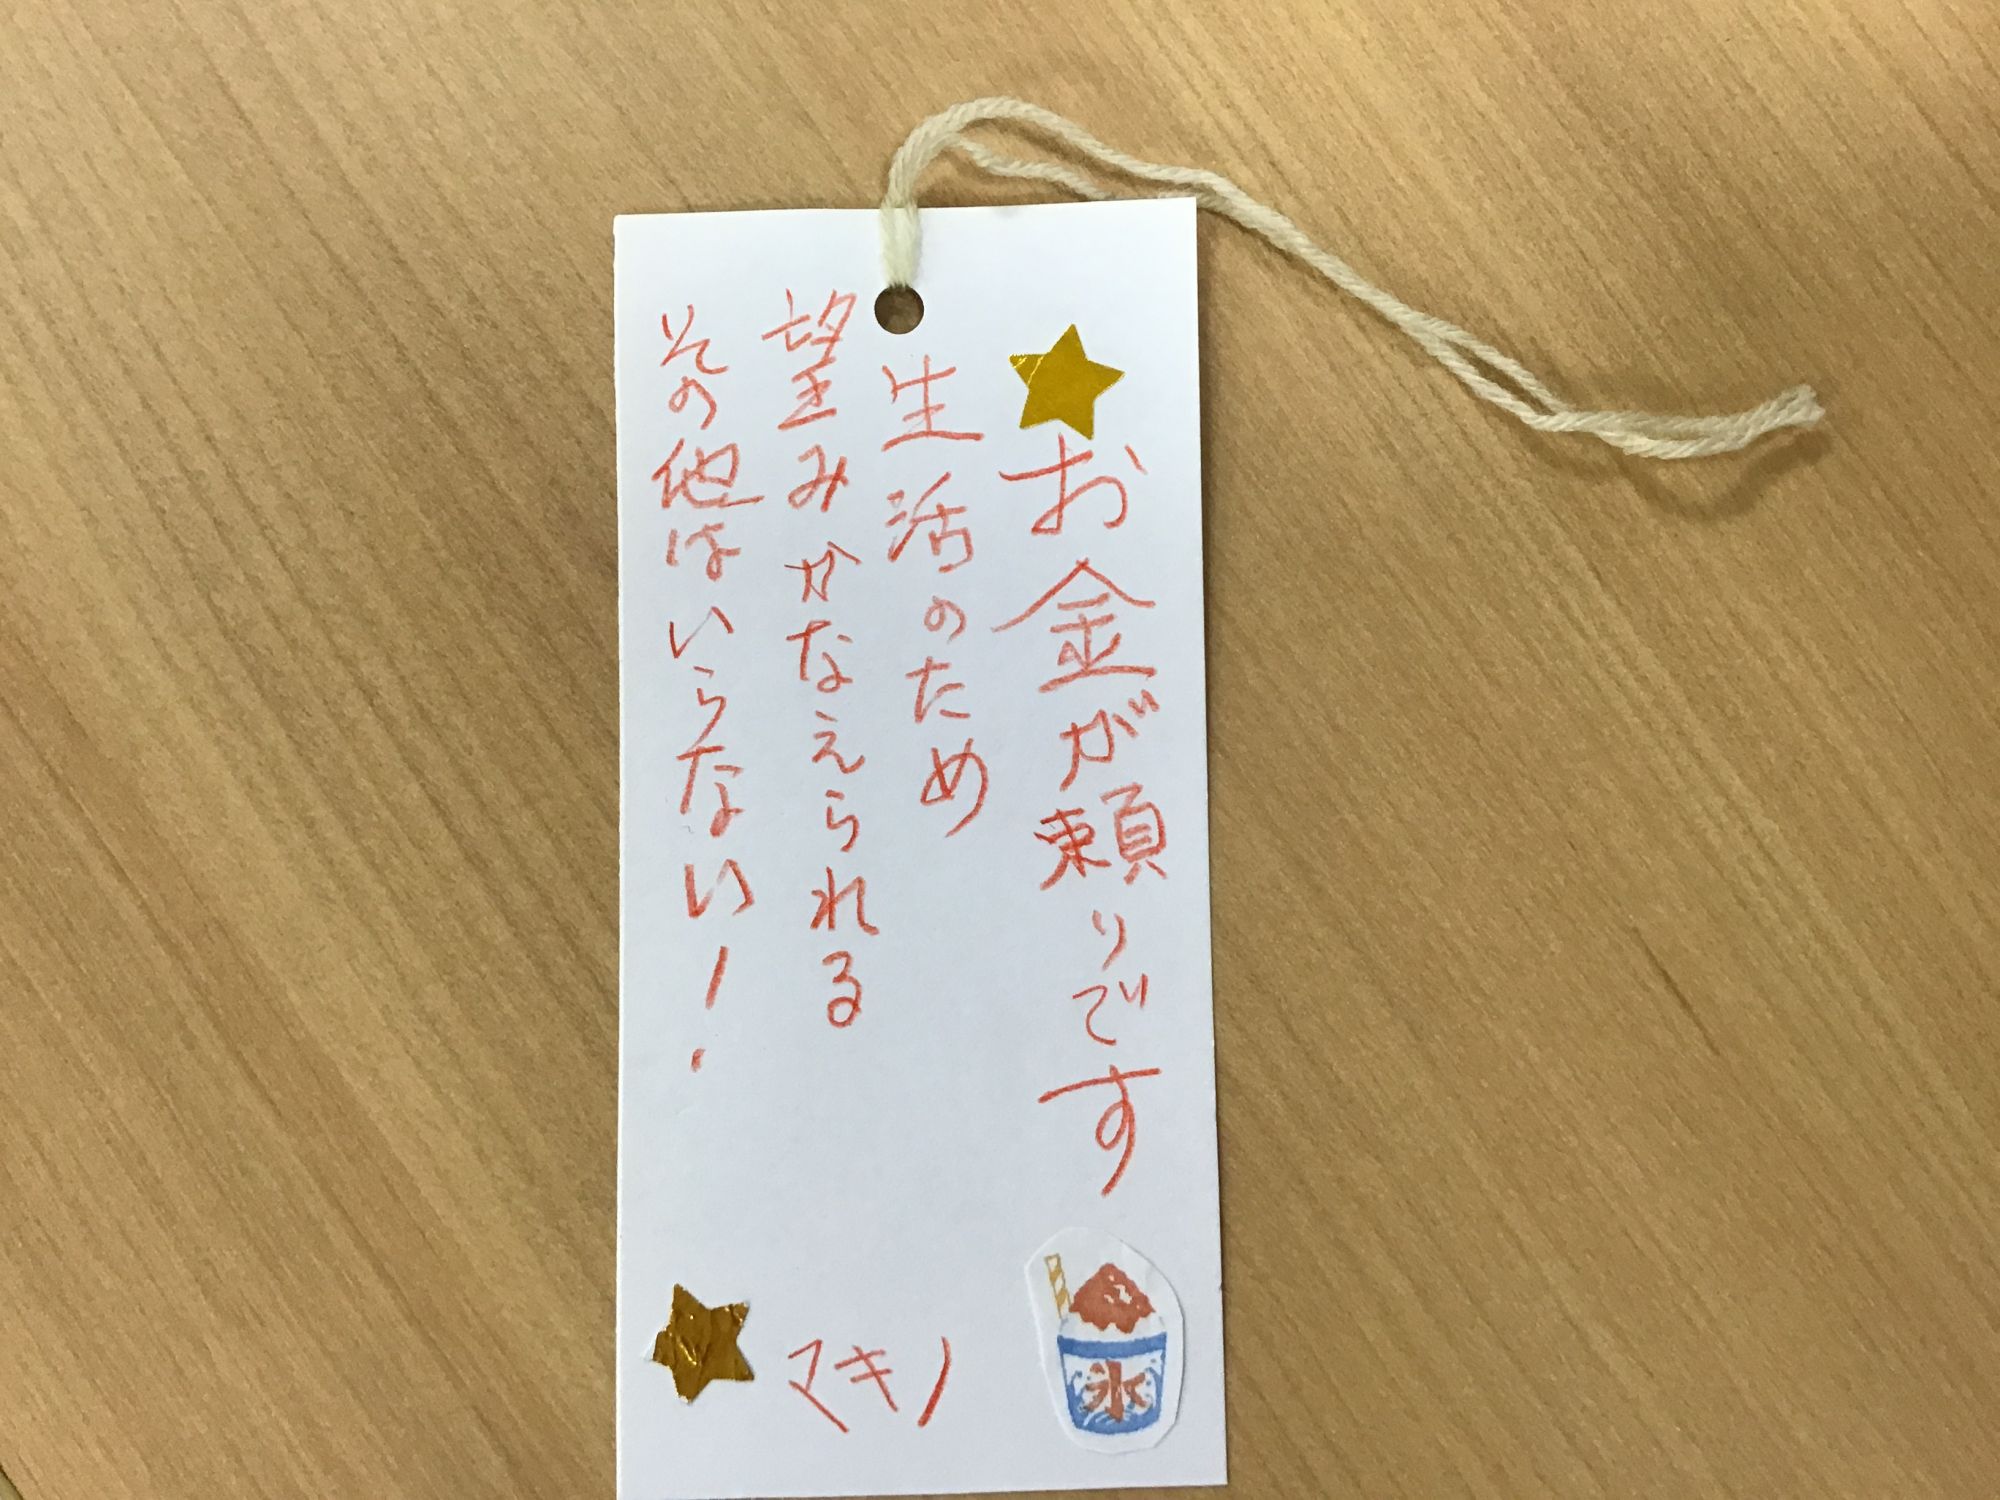 お金が頼りです
生活のため
望みかなえられる
その他はいらない!
マキノ
氷